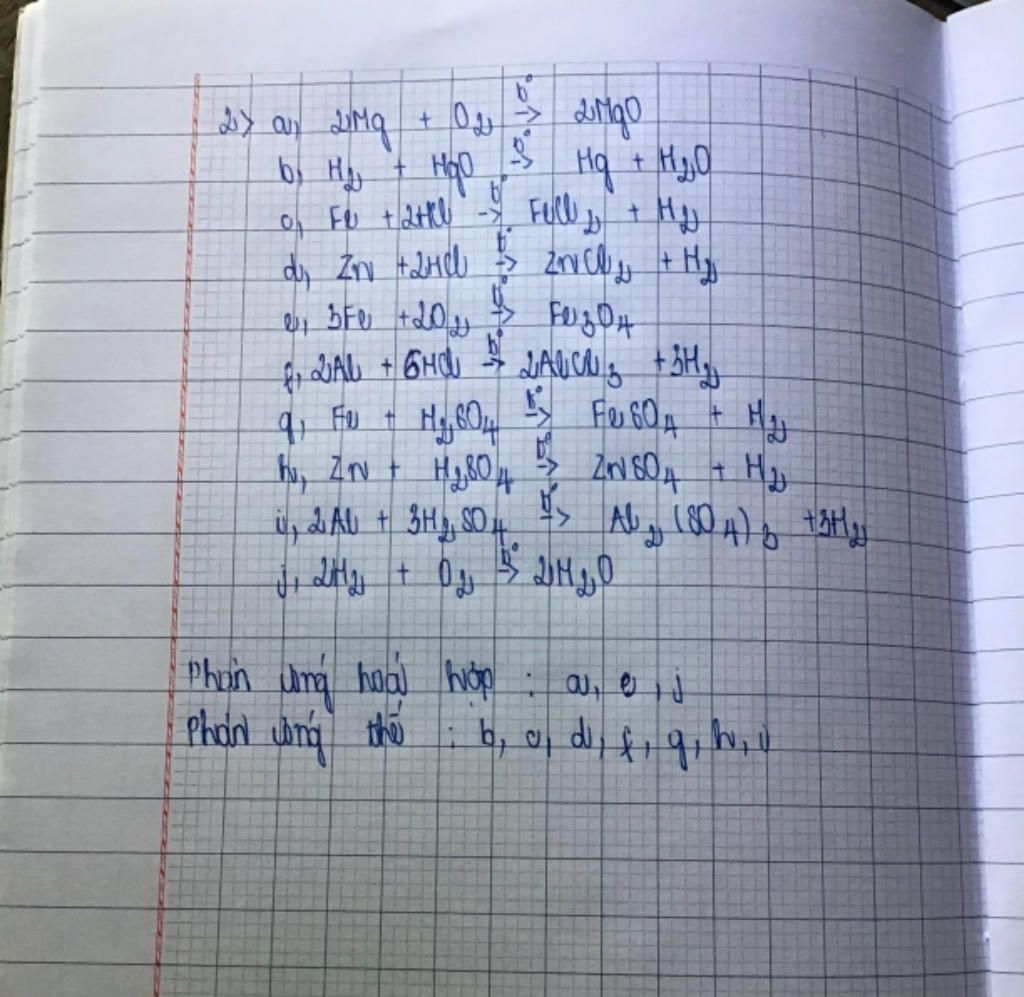 2> a, 2Mg + O₂ →(t°) 2MgO
b, H₂ + HgO →(t°) Hg + H₂O
c, Fe + 2HCl →(t°) FeCl₂ + H₂
d, Zn + 2HCl →(t°) ZnCl₂ + H₂
e, 3Fe + 2O₂ →(t°) Fe₃O₄
f, 2Al + 6HCl →(t°) 2AlCl₃ + 3H₂
g, Fe + H₂SO₄ →(t°) FeSO₄ + H₂
h, Zn + H₂SO₄ →(t°) ZnSO₄ + H₂
i, 2Al + 3H₂SO₄ →(t°) Al₂(SO₄)₃ + 3H₂
j, 2H₂ + O₂ →(t°) 2H₂O
Phản ứng hoá hợp : a, e, j
Phản ứng thế : b, c, d, f, g, h, i